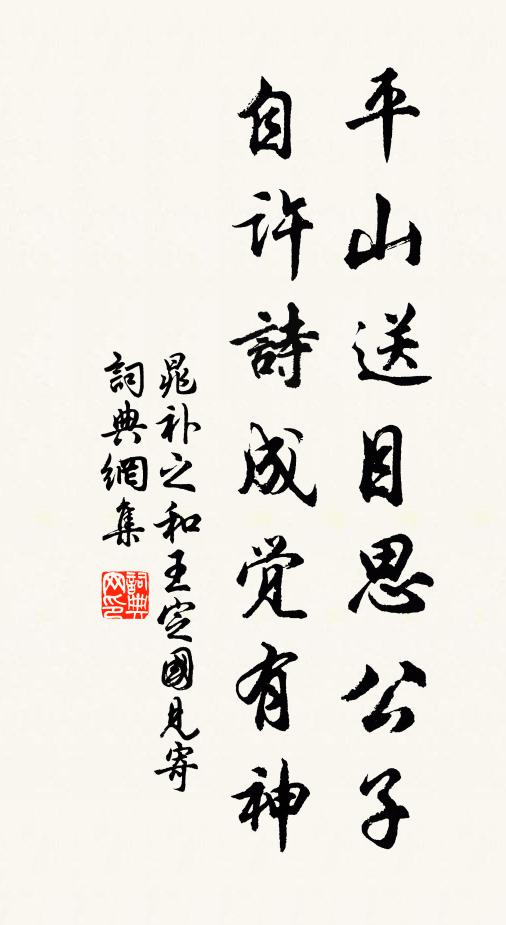 平山送目思公子
自许詩成觉有神
晁补之和王定國見寄
詞典網集
詞典网印